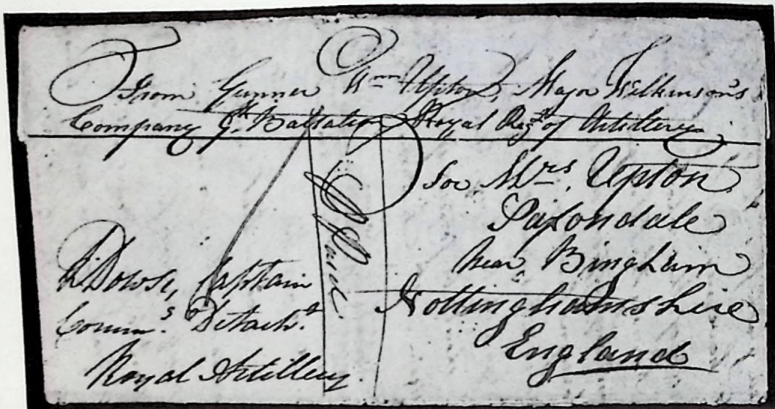 From Gunner Wm Upton, Major Wilkinson's
Company 9th Battalion Royal Regt of Artillery
For Mrs. Upton
Saxondale
Near Bingham
Nottinghamshire
England
Paid
R Dowse, Captain
Comms. Detacht.
Royal Artillery.